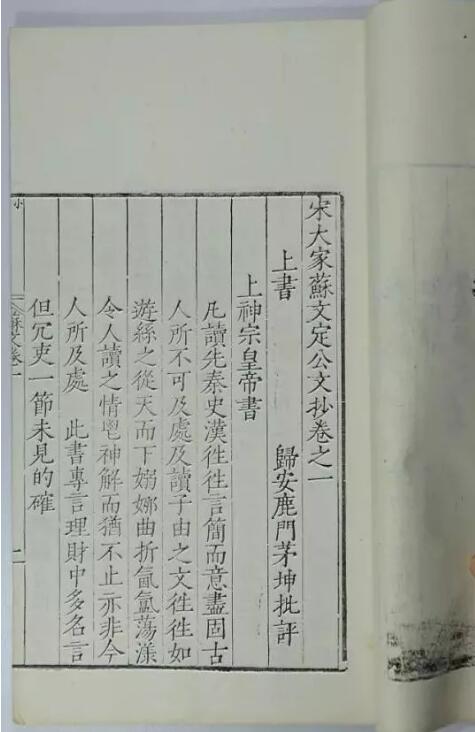 宋大家蘇文定公文抄卷之一
上書　歸安鹿門茅坤批評
上神宗皇帝書
凡讀先秦史漢徃徃言簡而意盡固古
人所不可及處及讀子由之文徃徃如
遊絲之從天而下嫋娜曲折氤氳蕩漾
令人讀之情鬯神解而猶不止亦非今
人所及處　此書專言理財中多名言
但冗吏一節未見的確
蘇文卷一　一